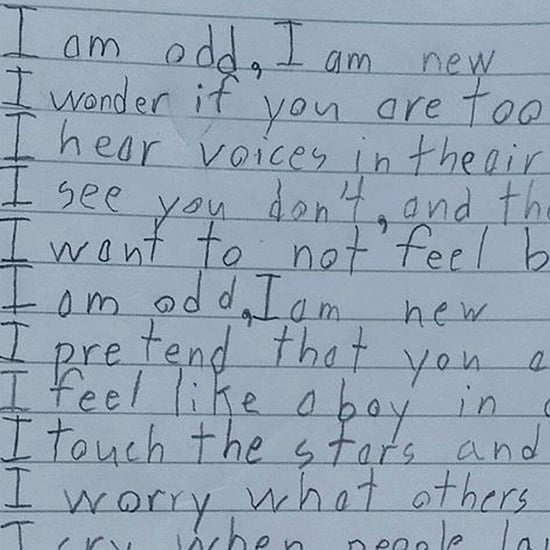 I am odd, I am new
I wonder if you are too
I hear voices in the air
I see you don't, and
I want to not feel
I am odd, I am new
I pretend that you
I feel like a boy in
I touch the stars and
I worry what others
I cry when people